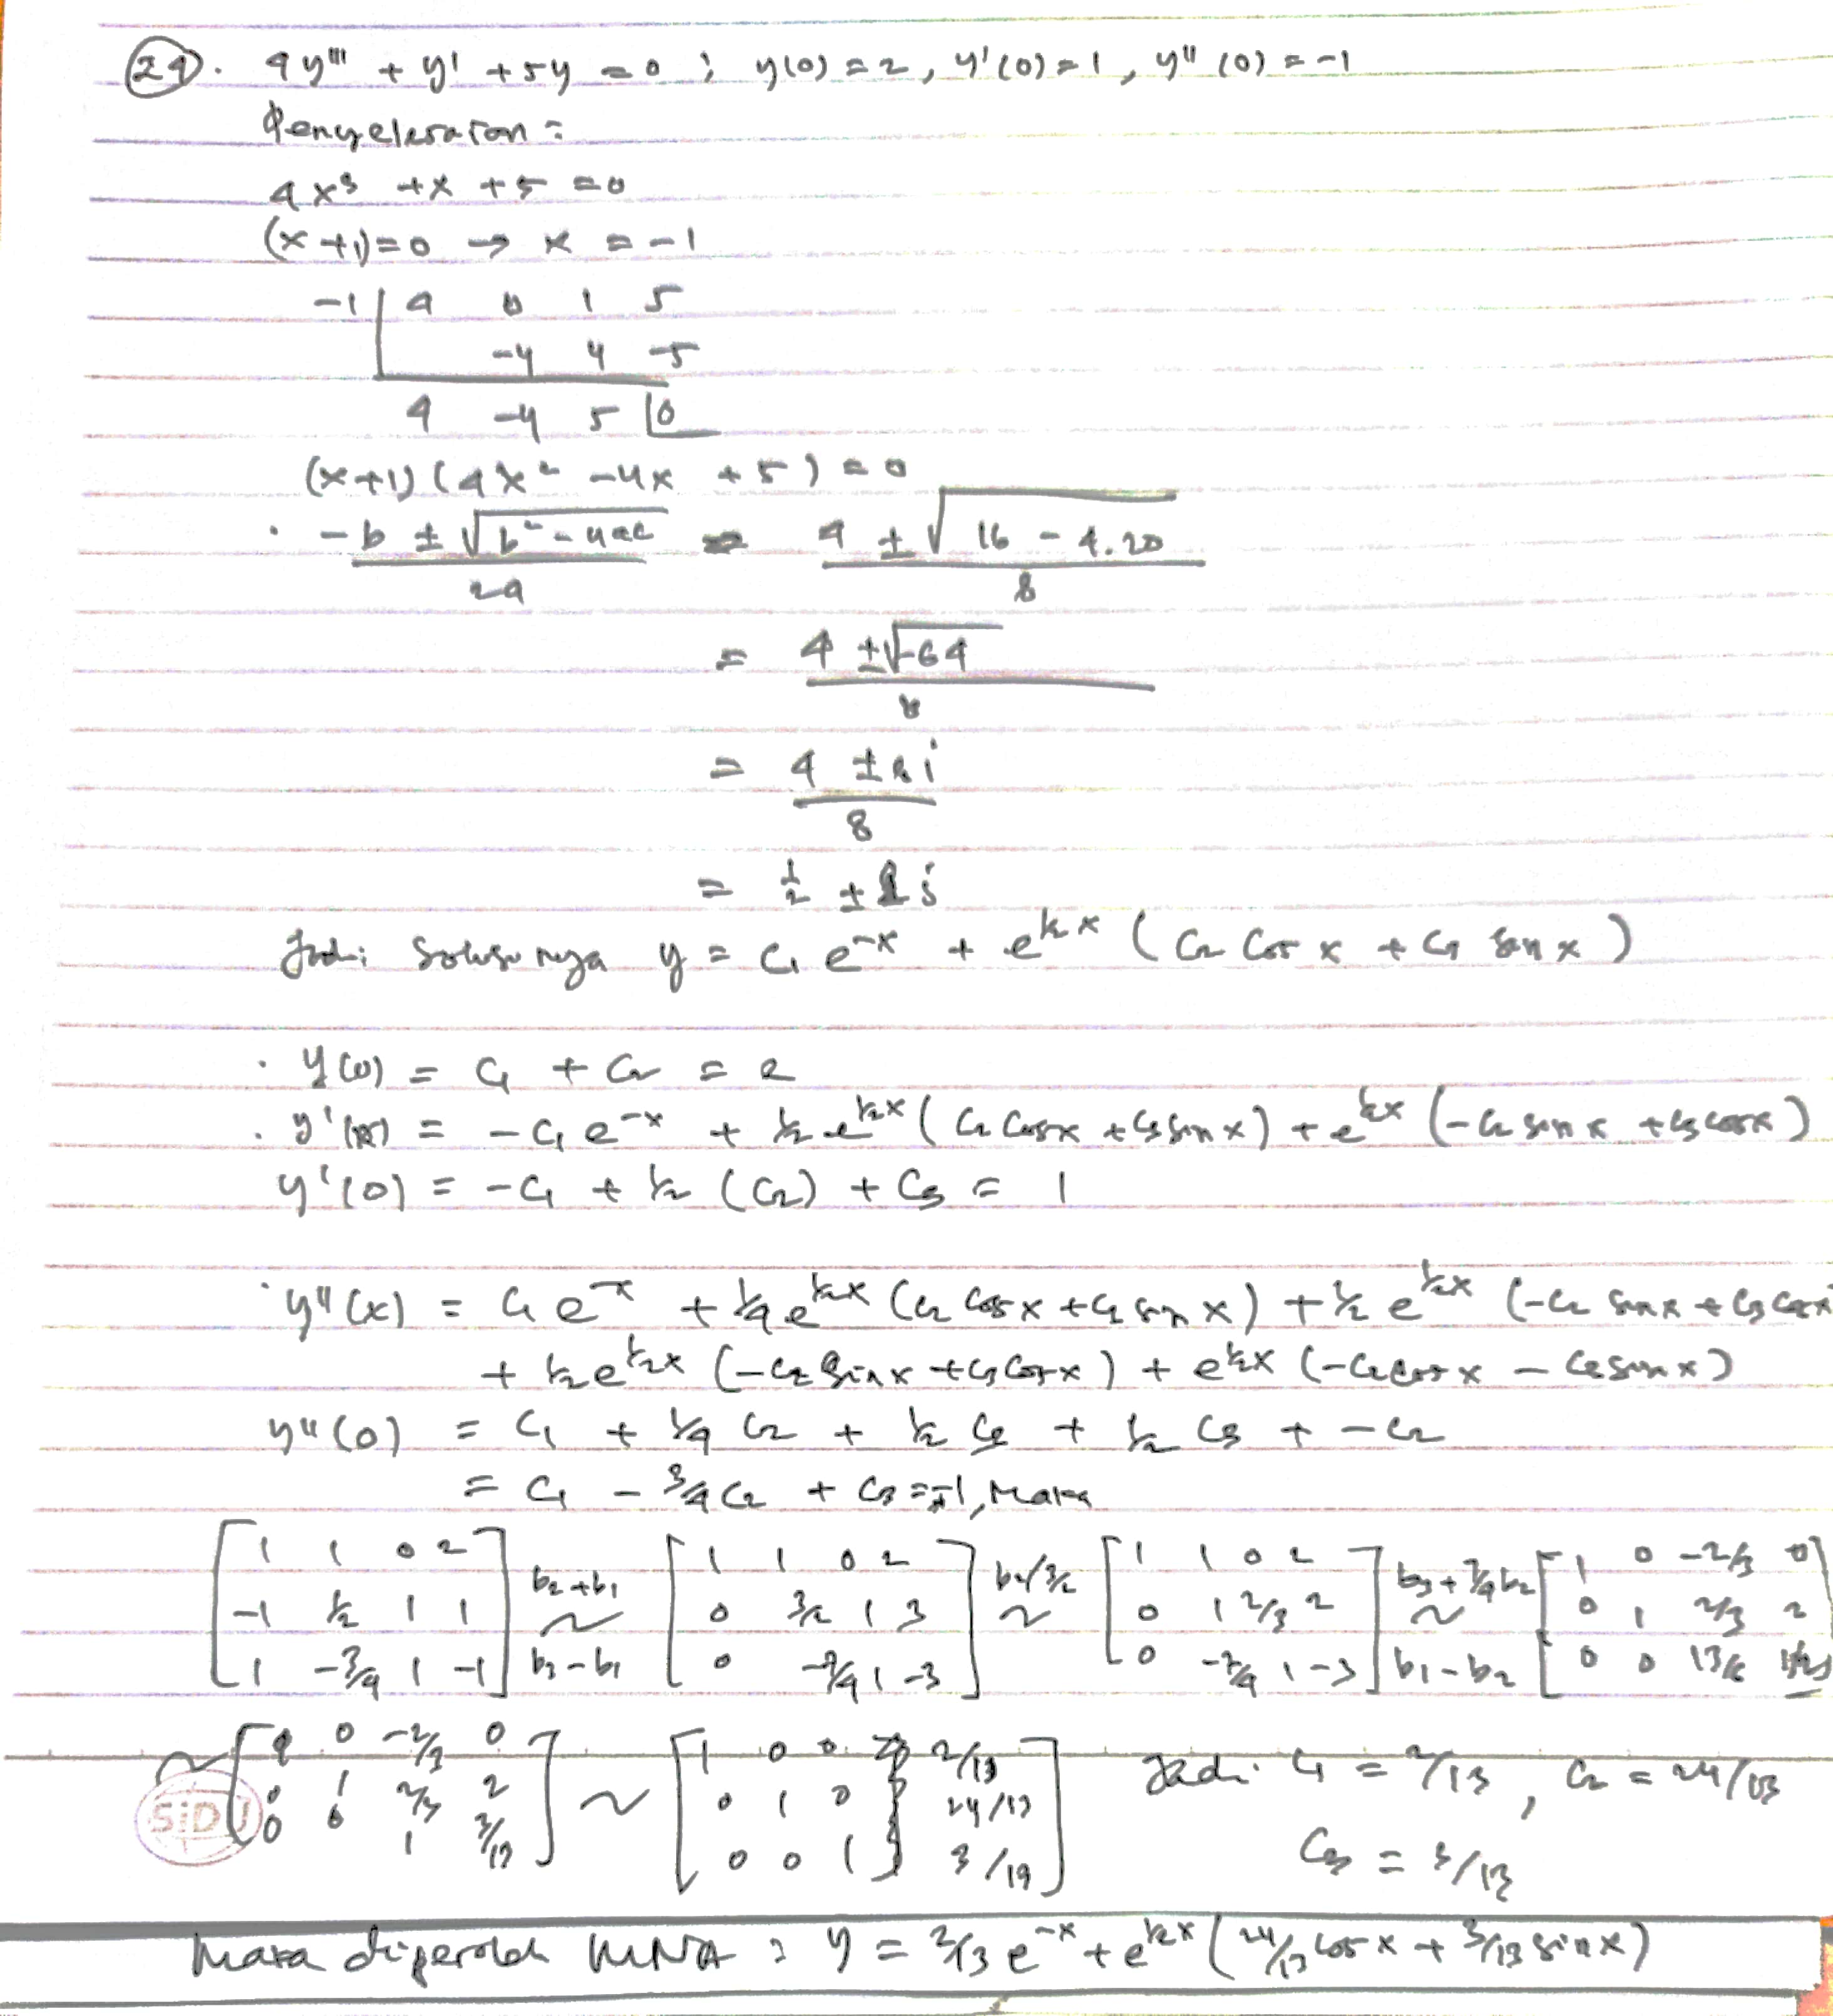 24. 4y''' + y' + 5y = 0 ; y(0) = 2, y'(0) = 1, y''(0) = -1
Penyelesaian =
4x³ + x + 5 = 0
(x+1) = 0 → x = -1
-1 | 4 0 1 5
-4 4 -5
4 -4 5 | 0
(x+1)(4x² - 4x + 5) = 0
· (-b ± √(b² - 4ac))/2a = (4 ± √(16 - 4.20))/8
= (4 ± √-64)/8
= (4 ± 8i)/8
= 1/2 ± i
Jadi solusinya y = C₁ e^(-x) + e^(1/2 x) (C₂ cos x + C₃ sin x)
· y(0) = C₁ + C₂ = 2
· y'(x) = -C₁ e^(-x) + 1/2 e^(1/2 x) (C₂ cos x + C₃ sin x) + e^(1/2 x) (-C₂ sin x + C₃ cos x)
y'(0) = -C₁ + 1/2 (C₂) + C₃ = 1
· y''(x) = C₁ e^(-x) + 1/4 e^(1/2 x) (C₂ cos x + C₃ sin x) + 1/2 e^(1/2 x) (-C₂ sin x + C₃ cos x
+ 1/2 e^(1/2 x) (-C₂ sin x + C₃ cos x) + e^(1/2 x) (-C₂ cos x - C₃ sin x)
y''(0) = C₁ + 1/4 C₂ + 1/2 C₃ + 1/2 C₃ + -C₂
= C₁ - 3/4 C₂ + C₃ = -1, Maka
[1 1 0 2] [1 1 0 2] [1 1 0 2] [1 0 -2/3 0]
[-1 1/2 1 1] b₂+b₁ ~ b₃-b₁ [0 3/2 1 3] b₂/3/2 ~ [0 1 2/3 2] b₃+7/4 b₂ ~ b₁-b₂ [0 1 2/3 2]
[1 -3/4 1 -1] [0 -7/4 1 -3] [0 -7/4 1 -3] [0 0 13/6 1/2]
~ [1 0 -2/3 0] ~ [1 0 0 2/13] Jadi C₁ = 2/13, C₂ = 24/13
[0 1 2/3 2] [0 1 0 24/13]
[0 0 1 3/13] [0 0 1 3/13] C₃ = 3/13
SiDU
Maka diperoleh MNA : y = 2/13 e^(-x) + e^(1/2 x) (24/13 cos x + 3/13 sin x)